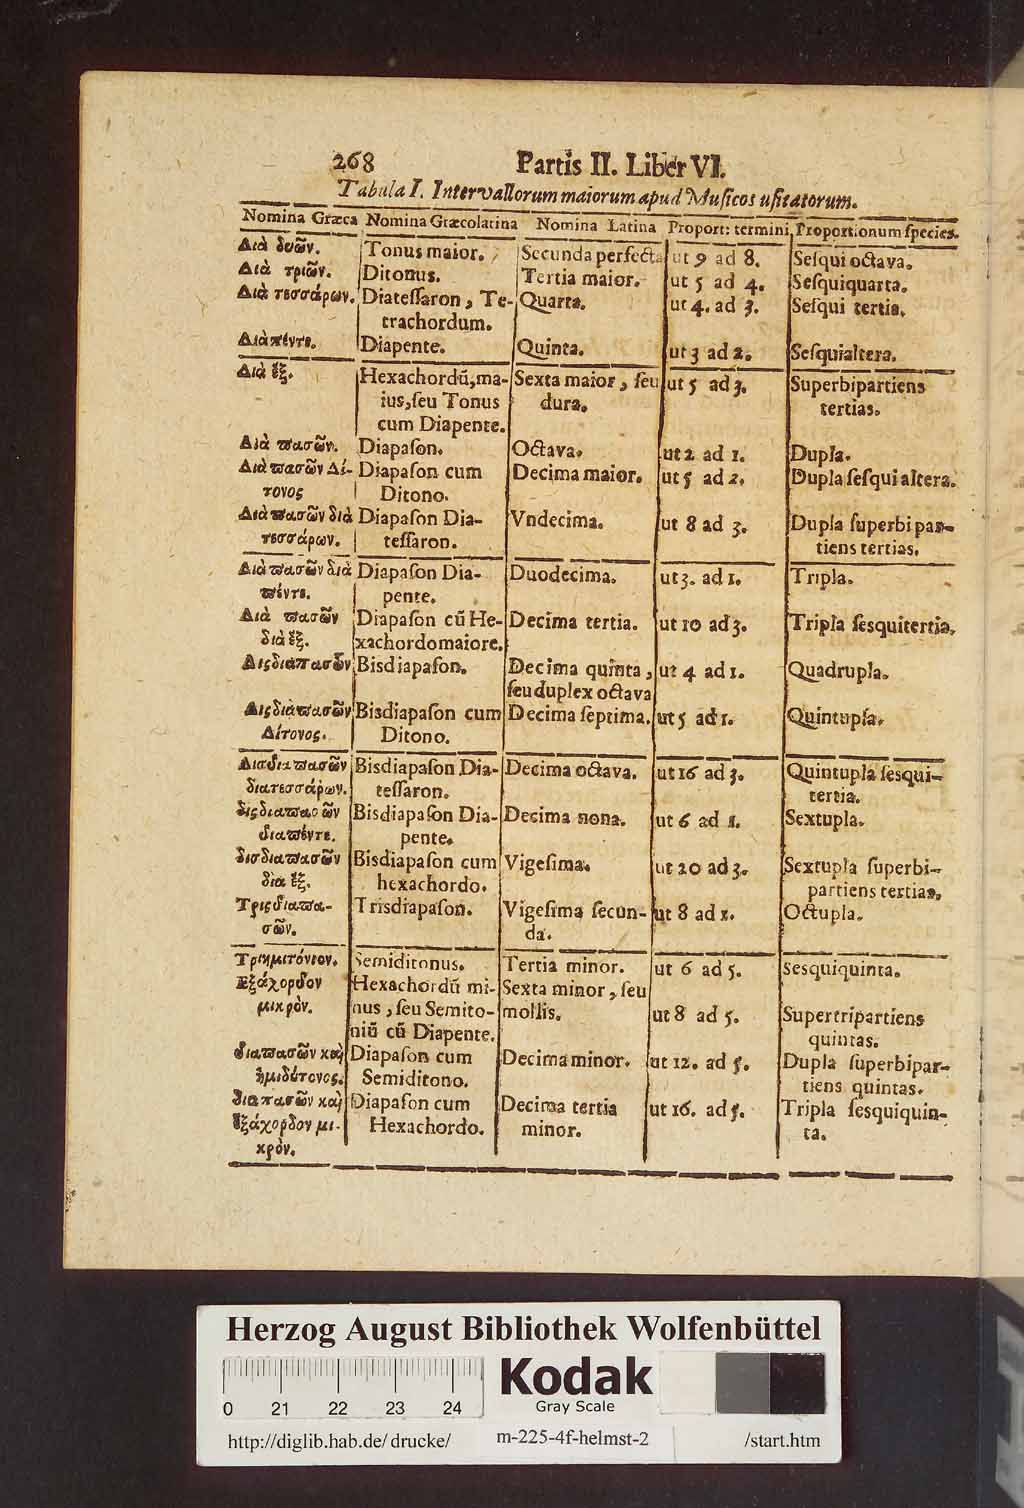 268 Partis II. Liber VI.
Tabula I. Intervallorum maiorum apud Muſicos uſitatorum.
Nomina Græca Nomina Græcolatina Nomina Latina Proport: termini, Proportionum ſpecies.
Διὰ δυῶν. Tonus maior. Secunda perfecta ut 9 ad 8. Seſqui octava.
Διὰ τριῶν. Ditonus. Tertia maior. ut 5 ad 4. Seſquiquarta.
Διὰ τεσσάρων. Diateſſaron, Te- Quarta. ut 4. ad 3. Seſqui tertia.
trachordum.
Διὰ πέντε. Diapente. Quinta. ut 3 ad 2. Seſquialtera.
Διὰ ἓξ. Hexachordũ, ma- Sexta maior, ſeu ut 5 ad 3. Superbipartiens
ius, ſeu Tonus dura. tertias.
cum Diapente.
Διὰ πασῶν. Diapaſon. Octava. ut 2 ad 1. Dupla.
Διὰ πασῶν Δί- Diapaſon cum Decima maior. ut 5 ad 2. Dupla ſeſqui altera.
τονος Ditono.
Διὰ πασῶν διὰ Diapaſon Dia- Vndecima. ut 8 ad 3. Dupla ſuperbi par-
τεσσάρων. teſſaron. tiens tertias.
Διὰ πασῶν διὰ Diapaſon Dia- Duodecima. ut 3. ad 1. Tripla.
πέντε. pente.
Διὰ πασῶν Diapaſon cũ He- Decima tertia. ut 10 ad 3. Tripla ſesquitertia.
διὰ ἓξ. xachordo maiore.
Δις διαπασῶν Bisdiapaſon. Decima quinta, ut 4 ad 1. Quadrupla.
ſeu duplex octava
Δις διὰ πασῶν Bisdiapaſon cum Decima ſeptima. ut 5 ad 1. Quintupla.
Δίτονος. Ditono.
Δισδιαπασῶν Bisdiapaſon Dia- Decima octava. ut 16 ad 3. Quintupla ſesqui-
διατεσσάρων. teſſaron. tertia.
διςδιαπασῶν Bisdiapaſon Dia- Decima nona. ut 6 ad 1. Sextupla.
διαπέντε. pente.
δισδιαπασῶν Bisdiapaſon cum Vigeſima. ut 20 ad 3. Sextupla ſuperbi-
διὰ ἓξ. hexachordo. partiens tertias.
Τρις διαπα- Trisdiapaſon. Vigeſima ſecun- ut 8 ad 1. Octupla.
σῶν. da.
Τριημιτόνιον. Semiditonus. Tertia minor. ut 6 ad 5. Sesquiquinta.
Εξάχορδον Hexachordũ mi- Sexta minor, ſeu
μικρὸν. nus, ſeu Semito- mollis. ut 8 ad 5. Supertripartiens
niũ cũ Diapente. quintas.
διαπασῶν καὶ Diapaſon cum Decima minor. ut 12. ad 5. Dupla ſuperbipar-
ἡμιδίτονος. Semiditono. tiens quintas.
διαπασῶν καὶ Diapaſon cum Decima tertia ut 16. ad 5. Tripla ſesquiquin-
ἑξάχορδον μι- Hexachordo. minor. ta.
κρὸν.
Herzog August Bibliothek Wolfenbüttel
0 21 22 23 24
Kodak
Gray Scale
http://diglib.hab.de/drucke/ m-225-4f-helmst-2 /start.htm